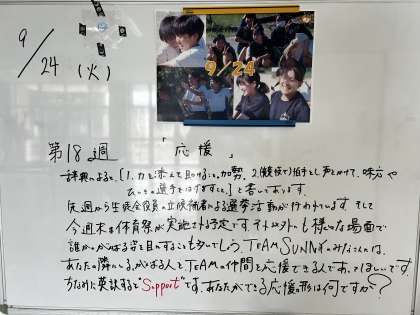 9/24 (火)
9/24
第18週 「応援」
辞典によると、[1. 力を添えて助けること。加勢。 2.(競技で)拍手をし声をかけて、味方や
の選手をはげますこと。]と書いてあります。
先週から生徒会役員の立候補者による選挙活動が行われています。そして
今週末は体育祭が実施される予定です。それ以外にも様々な場面で
誰かのがんばる姿を目にすることも多いでしょう。TEAM SUNNYのみなさんは、
あなたの隣にいる、がんばる人とTEAMの仲間を応援できる人であってほしいです。
ちなみに英訳すると"Support"です。あなたができる応援の形は何ですか?